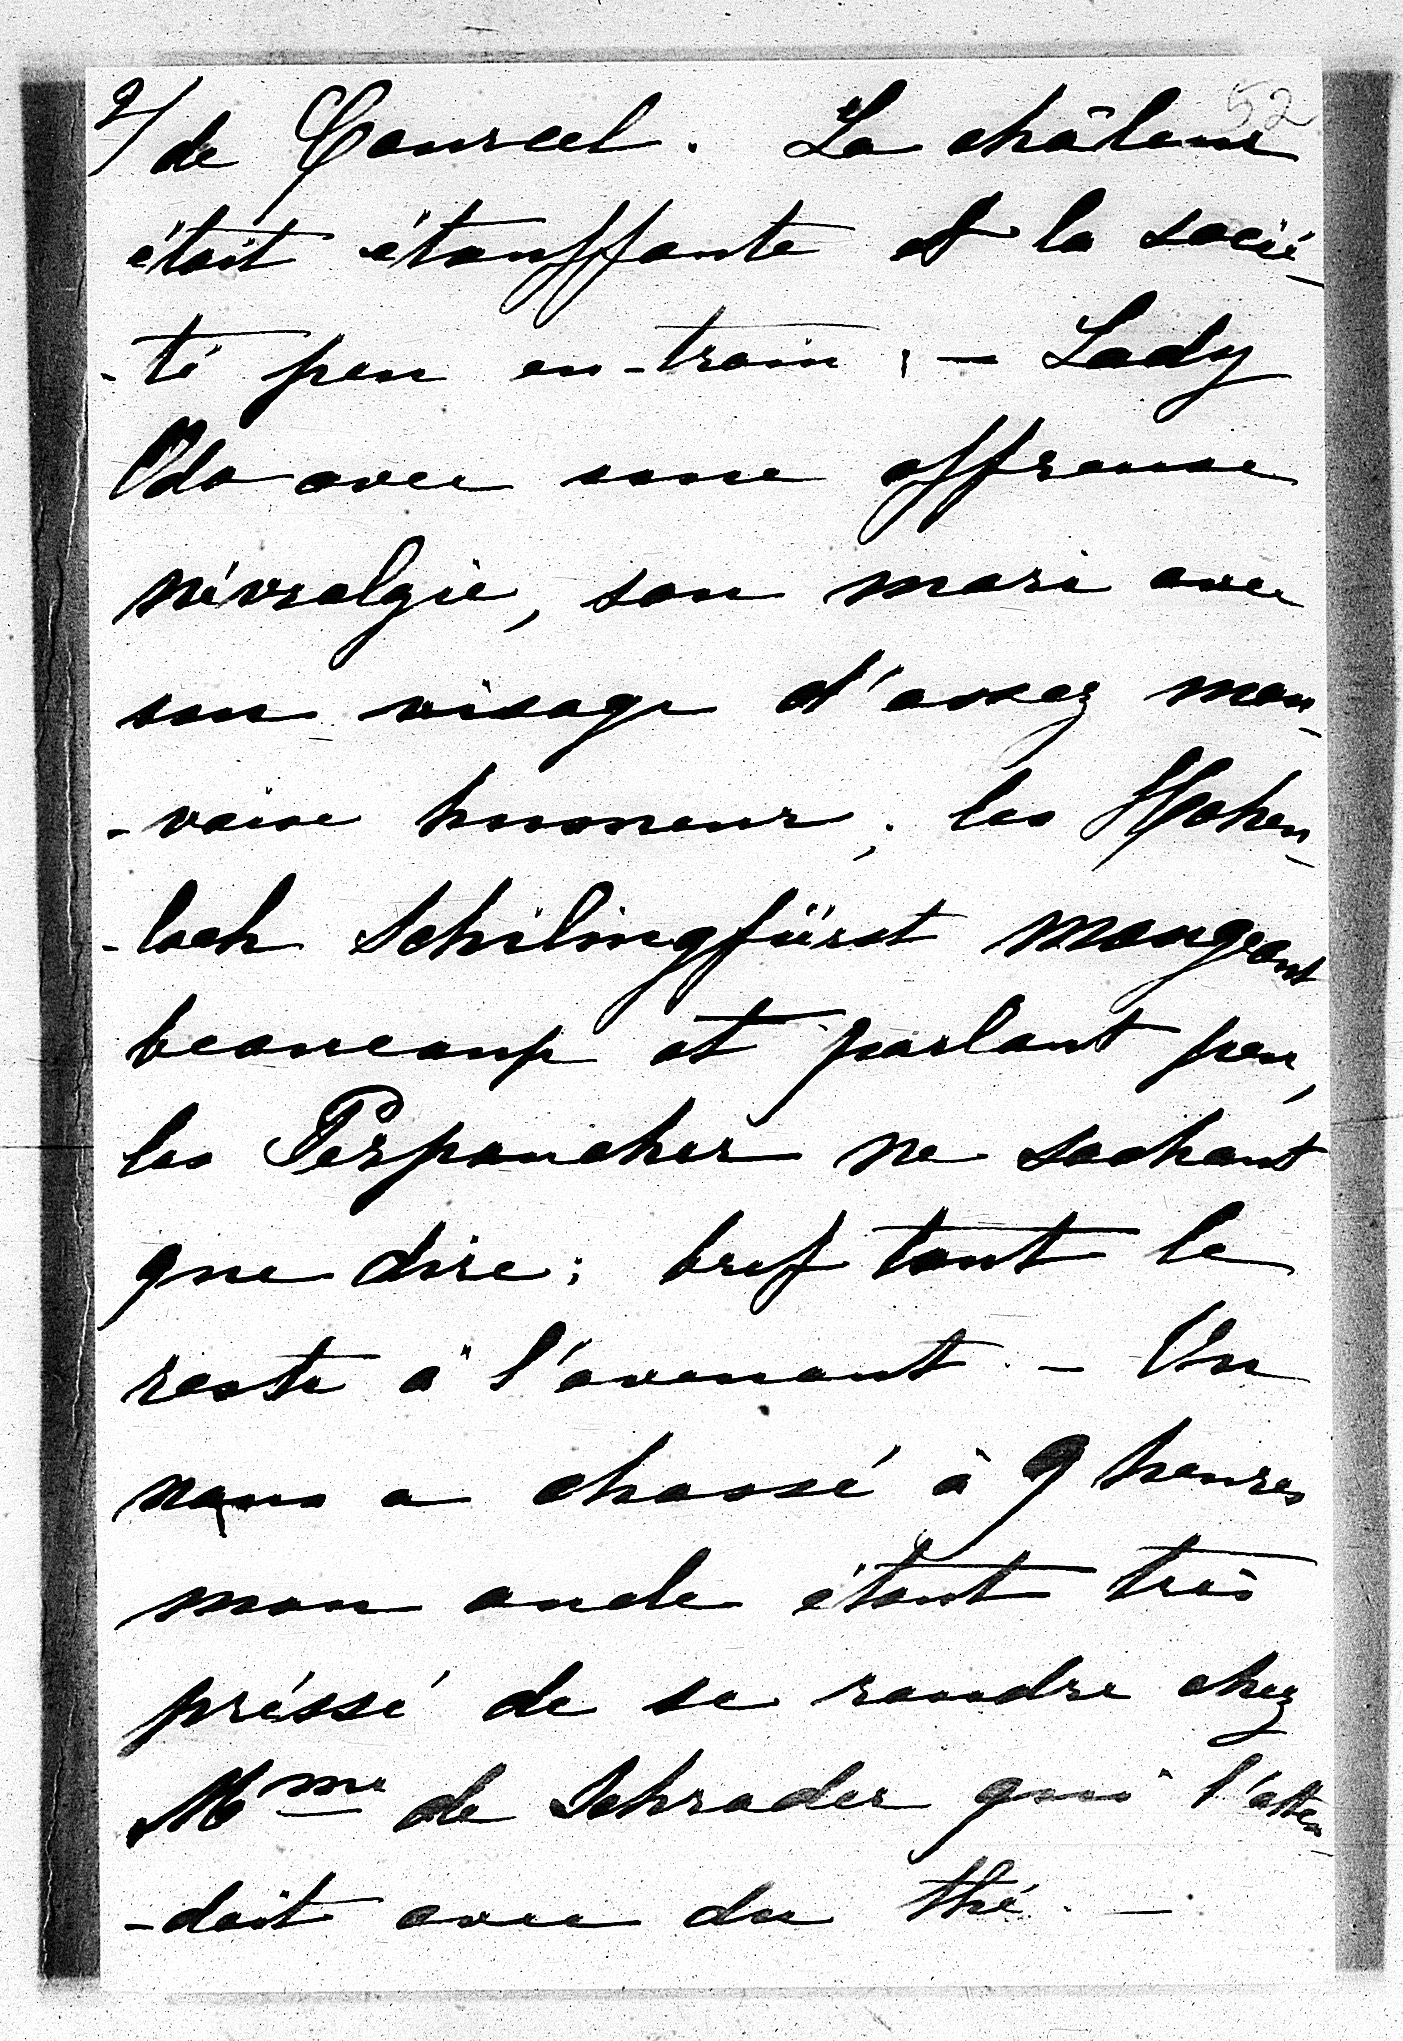 52
2/ de Courcel. La châleur
était étouffante et la socié-
-té peu en-train ; — Lady
Odo avec une affreuse
névralgie, son mari avec
son visage d'assez mau-
-vaise humeur ; les Hohen-
-loeh Schilingfürst mangeant
beaucoup et parlant peu,
les Perponcher ne sachant
que dire ; bref tout le
reste à l'avenant. — On
nous a chassé à 9 heures
mon oncle étant très
préssé de se rendre chez
Mme de Schrader qui l'atten-
-dait avec du thé. —